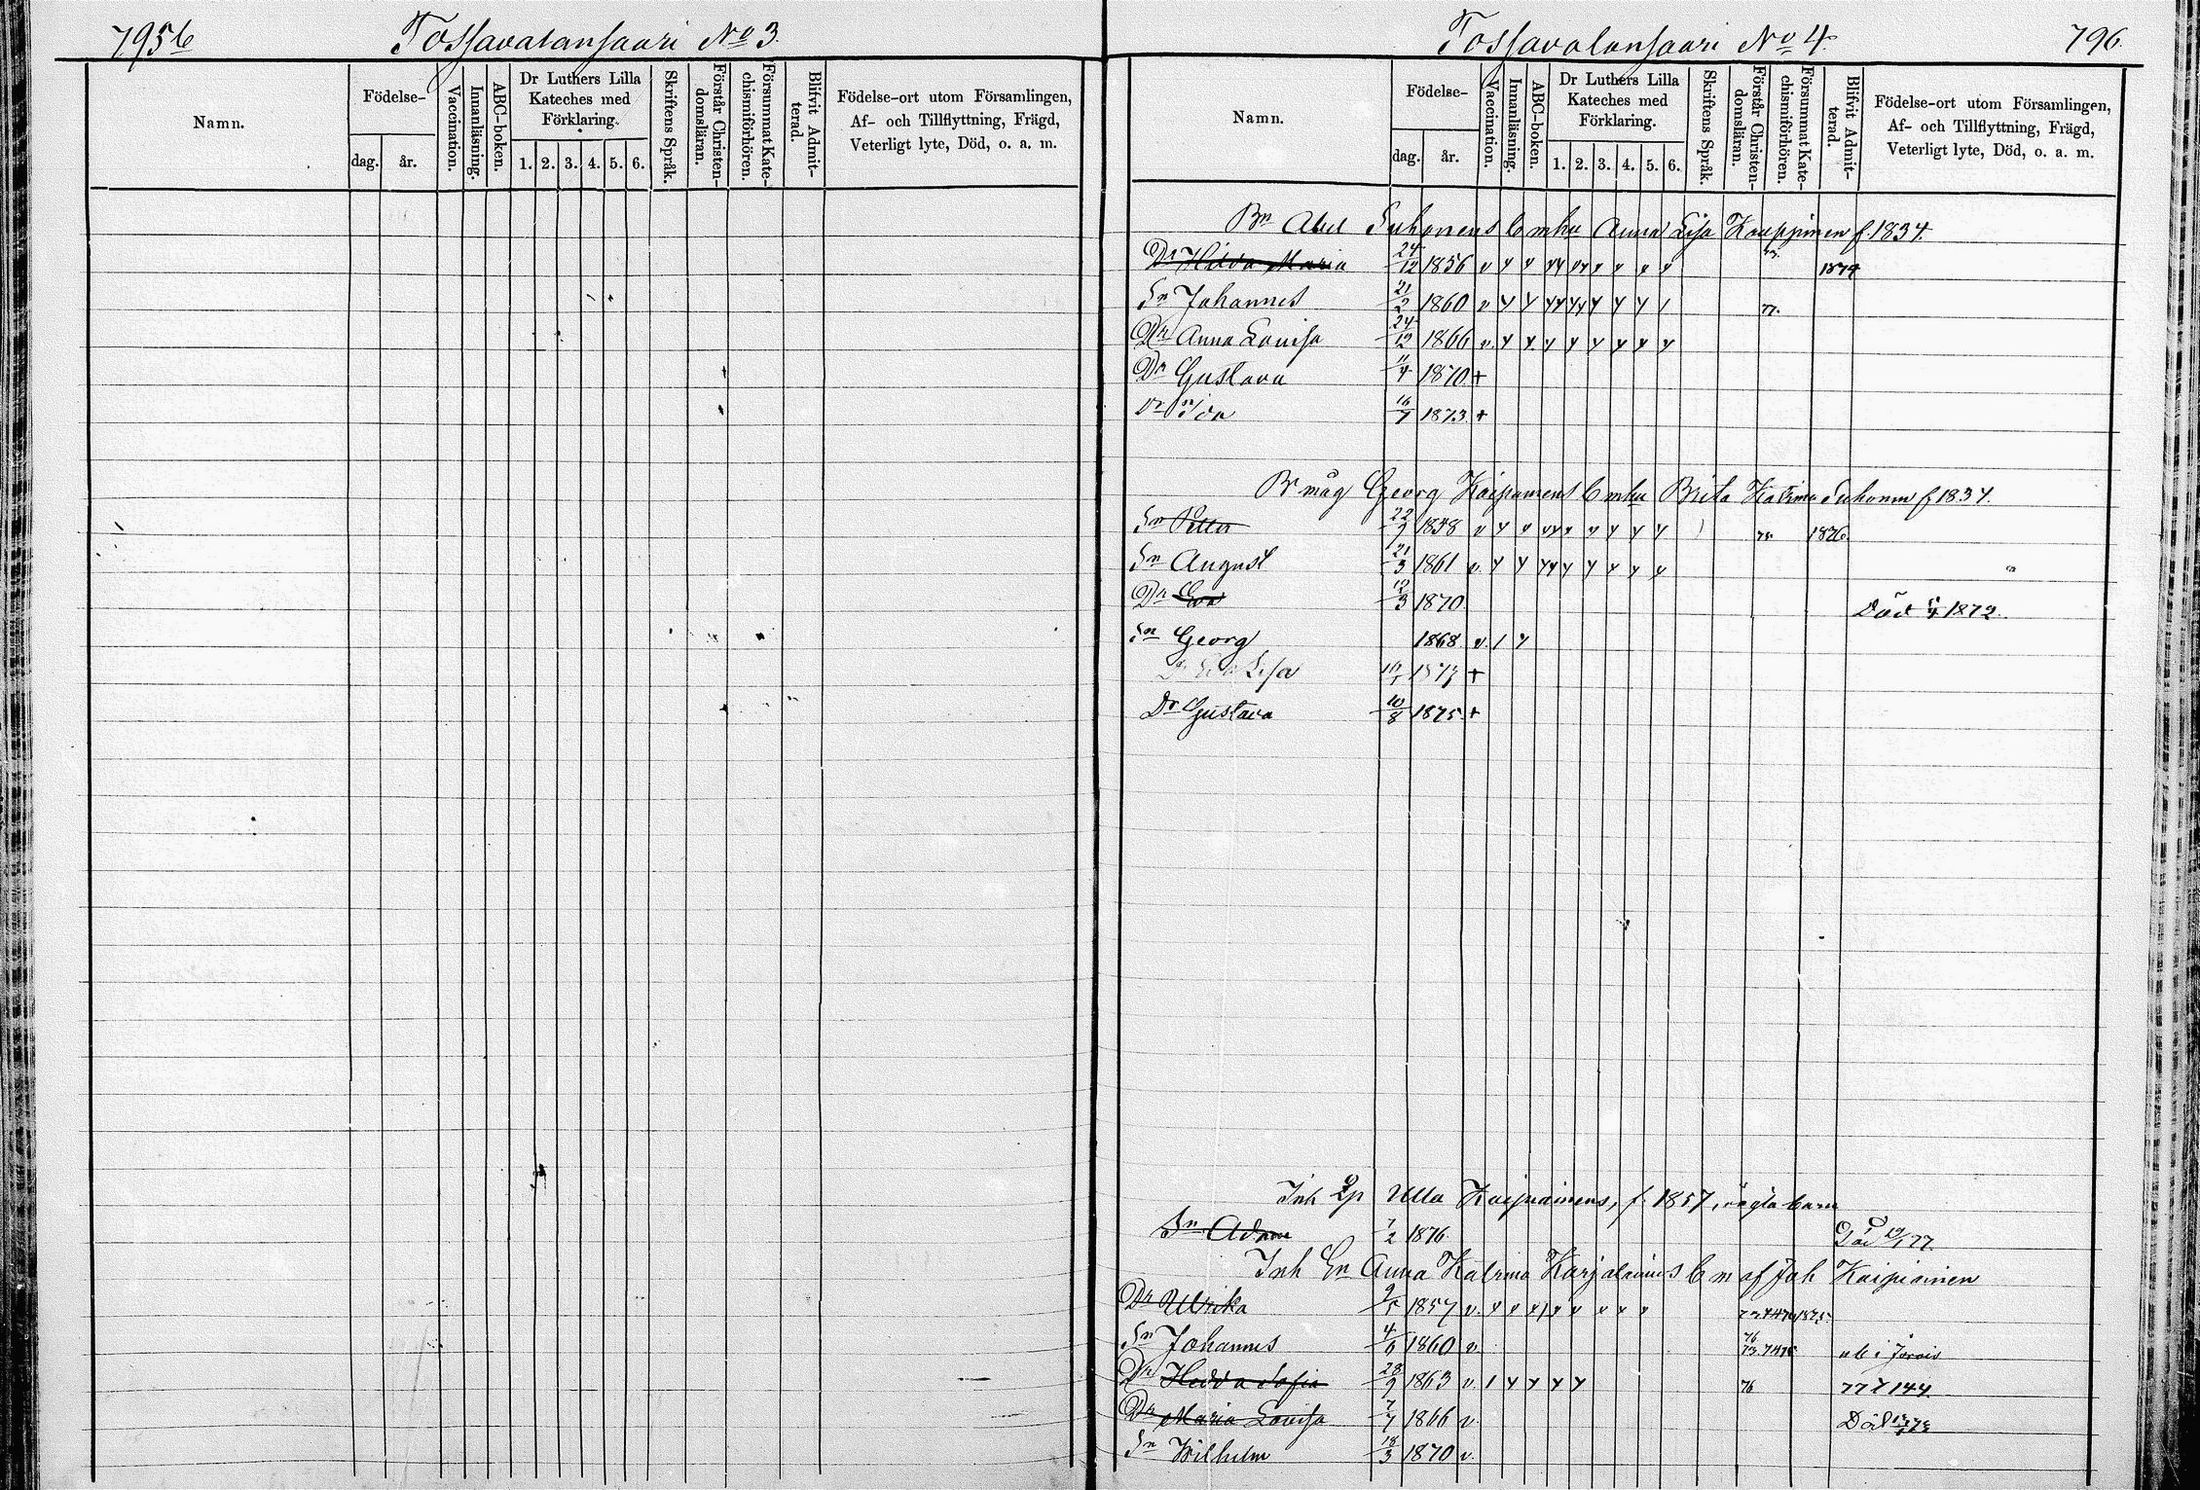 795b Tossavalansaari No 3.
Namn.
Födelse-
dag. år.
Vaccination.
Innanläsning.
ABC-boken.
Dr Luthers Lilla
Kateches med
Förklaring.
1. 2. 3. 4. 5. 6.
Skriftens Språk.
Förstår Christen-
domsläran.
Försummat Kate-
chismiförhören.
Blifvit Admit-
terad.
Födelse-ort utom Församlingen,
Af- och Tillflyttning, Frägd,
Veterligt lyte, Död, o. a. m.
Tossavalansaari No 4. 796.
Namn.
Födelse-
dag. år.
Vaccination.
Innanläsning.
ABC-boken.
Dr Luthers Lilla
Kateches med
Förklaring.
1. 2. 3. 4. 5. 6.
Skriftens Språk.
Förstår Christen-
domsläran.
Försummat Kate-
chismiförhören.
Blifvit Admit-
terad.
Födelse-ort utom Församlingen,
Af- och Tillflyttning, Frägd,
Veterligt lyte, Död, o. a. m.
Bn Abel Suhonens b m hu Anna Lisa Kauppinen f. 1834.
Dr Maria 24/12 1856 v 1874
Sn Johannes 21/2 1860 v 77.
Dr Anna Lovisa 24/12 1866 v.
Dr Gustava 11/4 1870 +
Dr Ida 16/7 1873 +
Br måg Georg Kaipainens b m hu Brita Katrina Suhonen f 1837.
Sn Petter 22/9 1858 v 75 1876.
Sn August 21/3 1861 v.
Dr Eva 12/3 1870 Död 1872.
Sn Georg 1868 v.
Lisa +
Dr Gustava 10/8 1875 +
Inh Ulla Kaipainens, f. 1857, oägta barn
Sn Adam 1/2 1876. Död 77.
Inh En Anna Katrina Karjalainens b m af Joh Kaipiainen
Dr Ulrika 9/5 1857 v. 1875
Sn Johannes 4/6 1860 v.
Dr Hedda Sofia 28/9 1863 v. 76 77 144
Dr Maria Lovisa 7/7 1866 v. Död
Sn Wilhelm 18/3 1870 v.